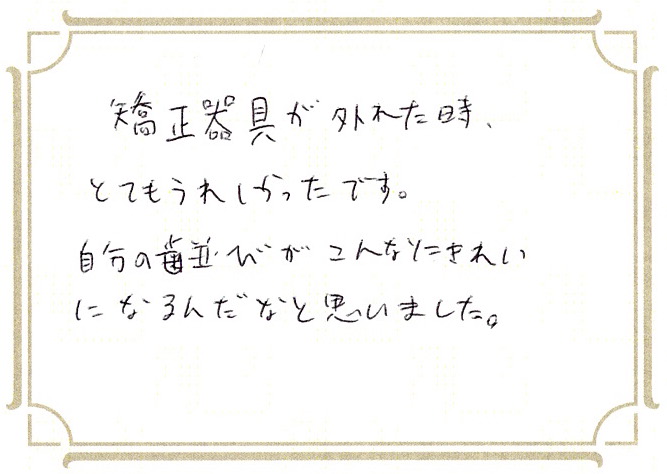 矯正器具が外れた時、
とてもうれしかったです。
自分の歯並びがこんなにきれい
になるんだなと思いました。